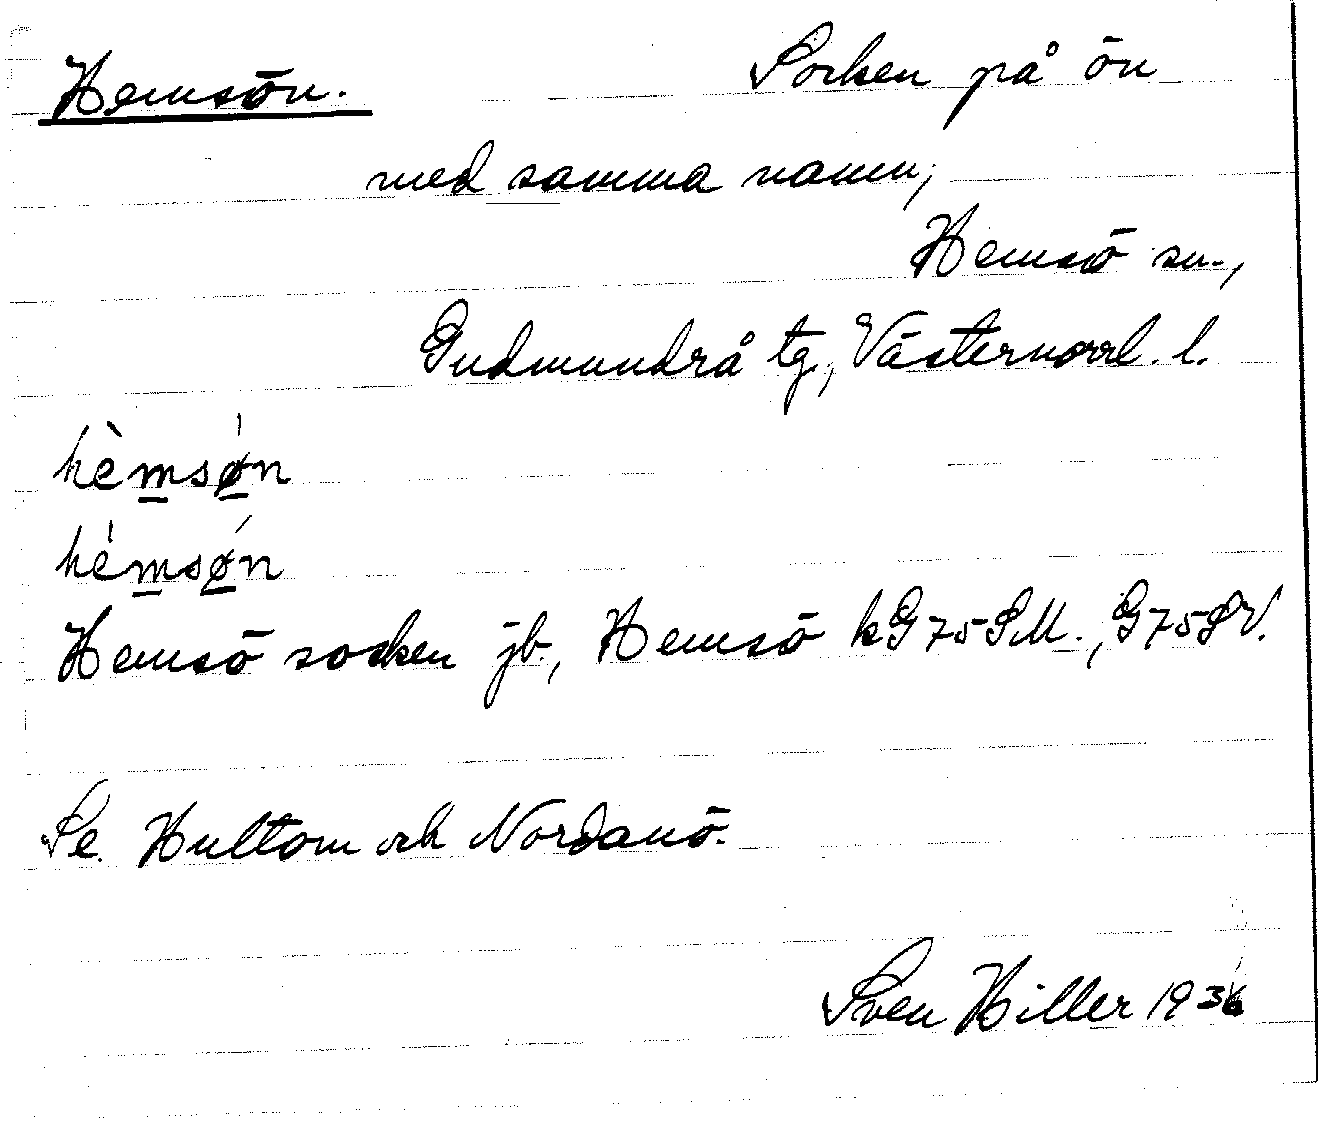 Hemsön. Socken på ön
med samma namn;
Hemsö sn.,
Gudmundrå tg., Västernorrl. l.
hèmsø̀n
hèmsøn
Hemsö socken jb., Hemsö kG75SM., G75SV.
Se Hultom och Nordanö.
Sven Hiller 1936